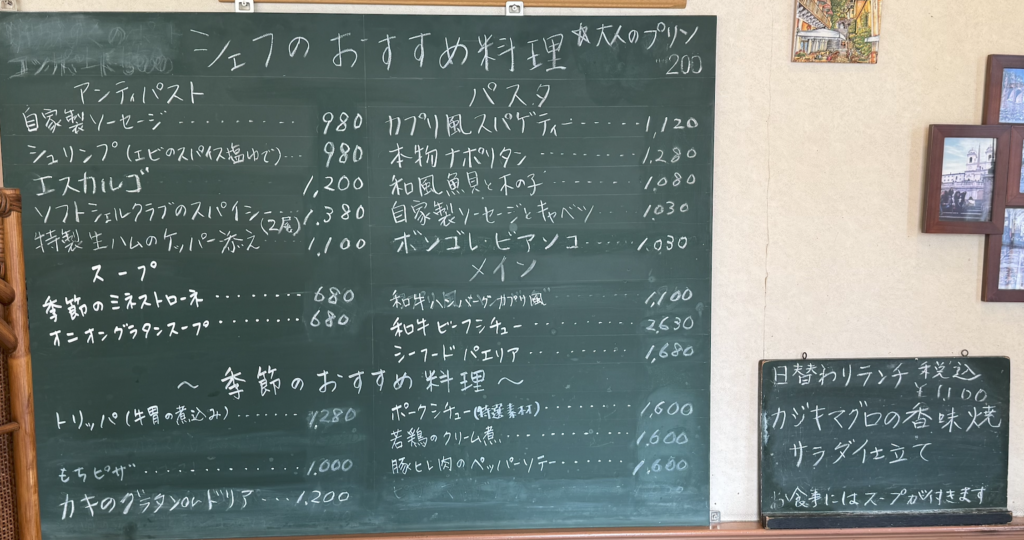 シェフのおすすめ料理
☆大人のプリン
…200
アンティパスト
自家製ソーセージ ............ 980
シュリンプ(エビのスパイス塩ゆで)... 980
エスカルゴ 1,200
ソフトシェルクラブのスパイシー (2尾) 1,380
特製生ハムのケッパー添え ... 1,100
スープ
季節のミネストローネ ......... 680
オニオングラタンスープ ......... 680
パスタ
カプリ風スパゲティー ......... 1,120
本物ナポリタン ......... 1,280
和風魚貝と木の子 ......... 1,080
自家製ソーセージとキャベツ ...... 1,030
ボンゴレ・ビアンコ ...... 1,030
メイン
和牛ハンバーグ カプリ風 ...... 1,100
和牛ビーフシチュー ......... 2,630
シーフードパエリア ......... 1,680
～季節のおすすめ料理～
トリッパ(牛胃の煮込み) ....... 1,280
もちピザ ............ 1,000
カキのグラタンorドリア ... 1,200
ポークシチュー(特選素材) ...... 1,600
若鶏のクリーム煮 ......... 1,600
豚ヒレ肉のペッパーソテー ... 1,600
日替わりランチ 税込
¥1,100
カジキマグロの香味焼
サラダ仕立て
お食事にはスープが付きます